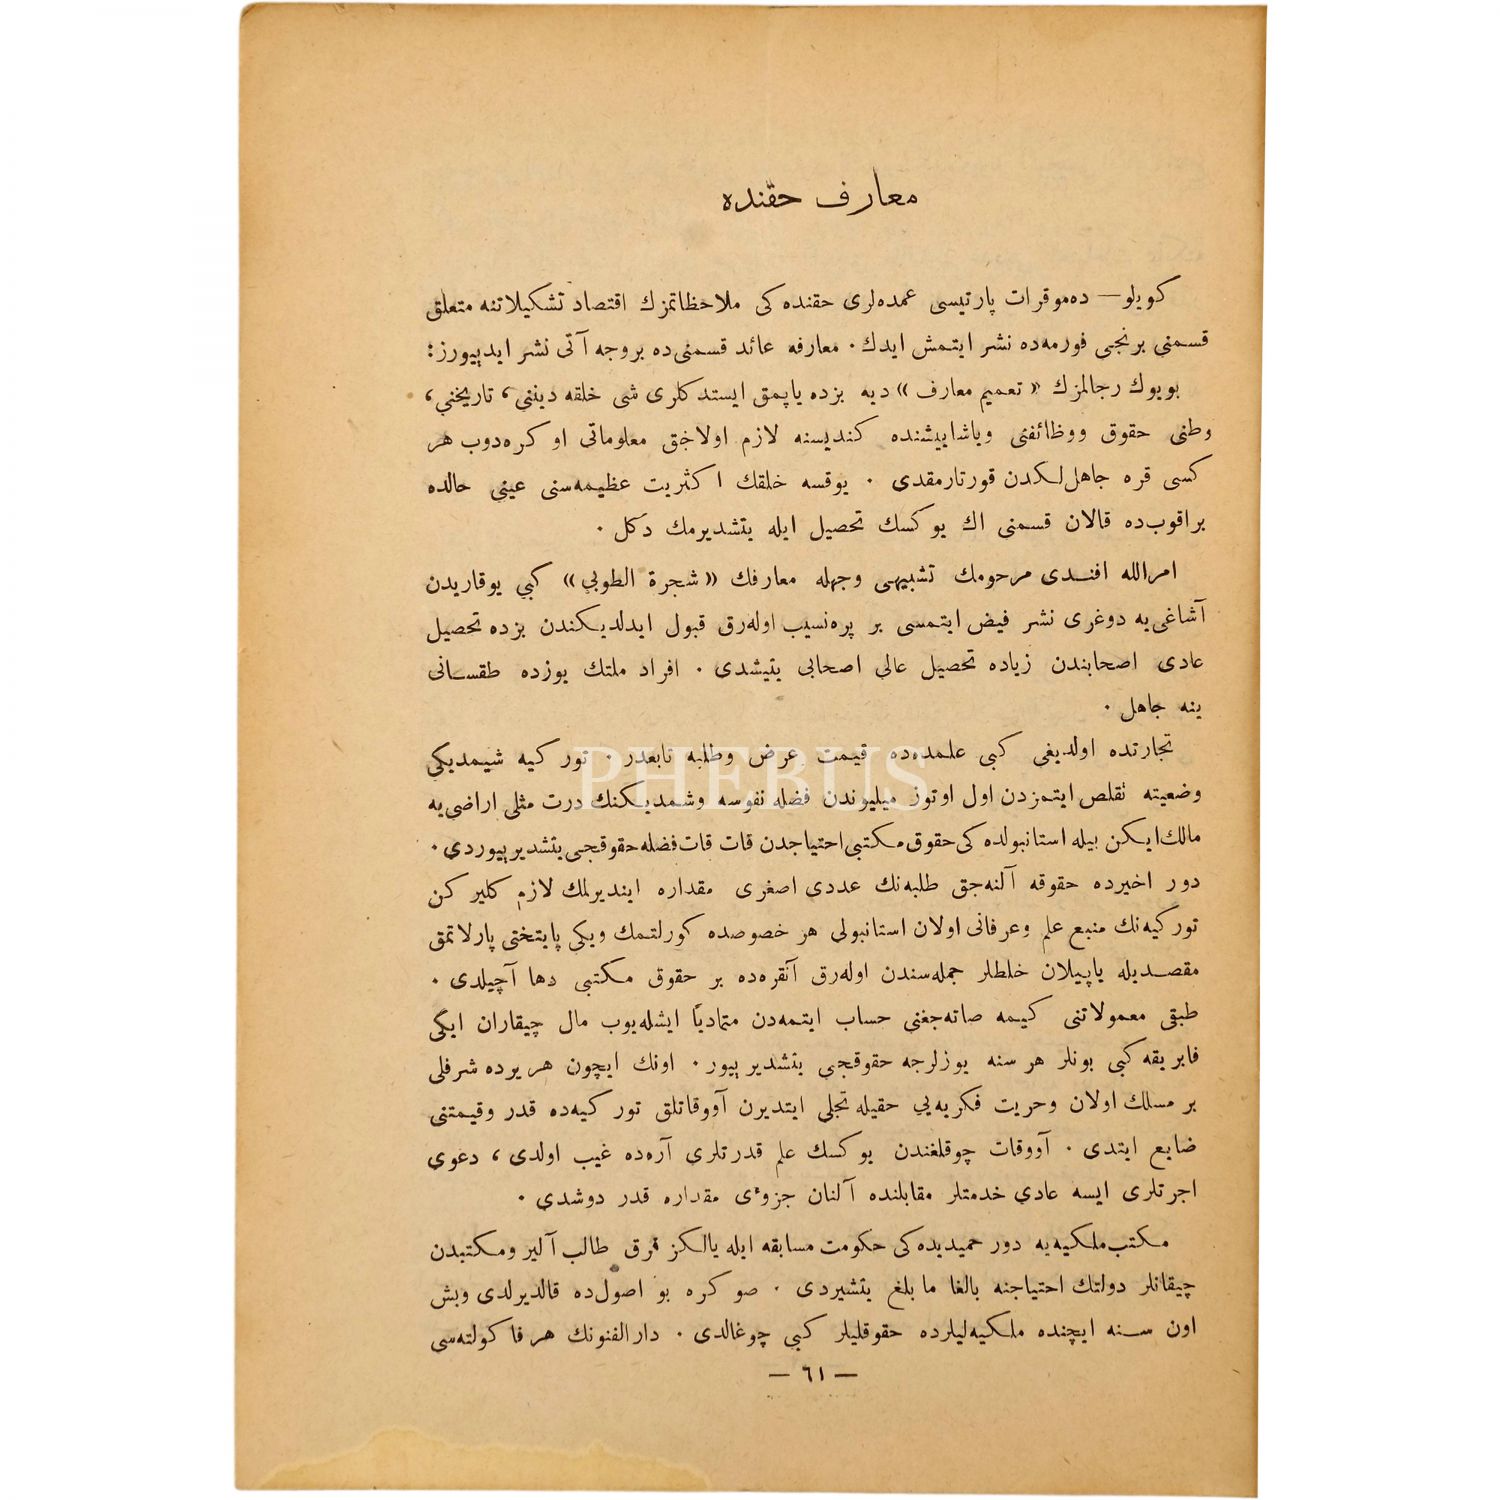 معارف حقنده
كويلو — ده‌موقرات پارتيسى عمده‌لرى حقنده كى ملاحظاتمزك اقتصاد تشكيلاتنه متعلق
قسمني برنجى فورمه‌ده نشر ايتمش ايدك . معارفه عائد قسمنى‌ده بروجه آتى نشر ايدييورز :
بويوك رجالمزك « تعميم معارف » ديه بزده ياپمق ايستدكلرى شى خلقه ديننى ، تاريخني ،
وطنى حقوق ووظائفنى وياشاييشنده كنديسنه لازم اولاجق معلوماتى اوكره‌دوب هر
كسى قره جاهل‌لكدن قورتارمقدى . يوقسه خلقك اكثريت عظيمه‌سنى عينى حالده
براقوب‌ده قالان قسمنى اك يوكسك تحصيل ايله يتشديرمك دكل .
امرالله افندى مرحومك تشبيهى وجهله معارفك « شجرة الطوبى » كبي يوقاريدن
آشاغى‌يه دوغرى نشر فيض ايتمسى بر پره‌نسيب اوله‌رق قبول ايدلديكندن بزده تحصيل
عادى اصحابندن زياده تحصيل عالى اصحابى يتيشدى . افراد ملتك يوزده طقسانى
ينه جاهل .
تجارتده اولديغى كبى علمده‌ده قيمت عرض وطلبه تابعدر . توركيه شيمديكى
وضعيته تقلص ايتمزدن اول اوتوز ميليوندن فضله نفوسه وشمديكنك درت مثلى اراضى‌يه
مالك‌ايكن بيله استانبولده كى حقوق مكتبى احتياجدن قات قات فضله حقوقجى يتشدير ييوردى .
دور اخيرده حقوقه آلنه‌جق طلبه‌نك عددى اصغرى مقداره اينديرلمك لازم كلير كن
توركيه‌نك منبع علم وعرفانى اولان استانبولى هر خصوصده كورلتمك ويكى پايتختى پارلاتمق
مقصديله ياپيلان خلطلر جمله‌سندن اوله‌رق آنقره‌ده بر حقوق مكتبى دها آچيلدى .
طبقى معمولاتنى كيمه صاته‌جغنى حساب ايتمه‌دن متماديًا ايشله‌يوب مال چيقاران ايكى
فابريقه كبى بونلر هر سنه يوزلرجه حقوقجى يتشدير ييور . اونك ايچون هر يرده شرفلى
بر مسلك اولان وحريت فكريه‌يى حقيله تجلى ايتديرن آووقاتلق توركيه‌ده قدر وقيمتنى
ضايع ايتدى . آووقات چوقلغندن يوكسك علم قدرتلرى آره‌ده غيب اولدى ، دعوى
اجرتلرى ايسه عادى خدمتلر مقابلنده آلنان جزوئى مقداره قدر دوشدى .
مكتب‌ملكيه‌يه دور حميديده كى حكومت مسابقه ايله يالكز قرق طالب آلير ومكتبدن
چيقانلر دولتك احتياجنه بالغا مابلغ يتشيردى . صوكره بو اصول‌ده قالديرلدى وبش
اون سنه ايچنده ملكيه‌ليلرده حقوقليلر كبى چوغالدى . دارالفنونك هر فاكولته‌سى
— ٦١ —
PHEBUS